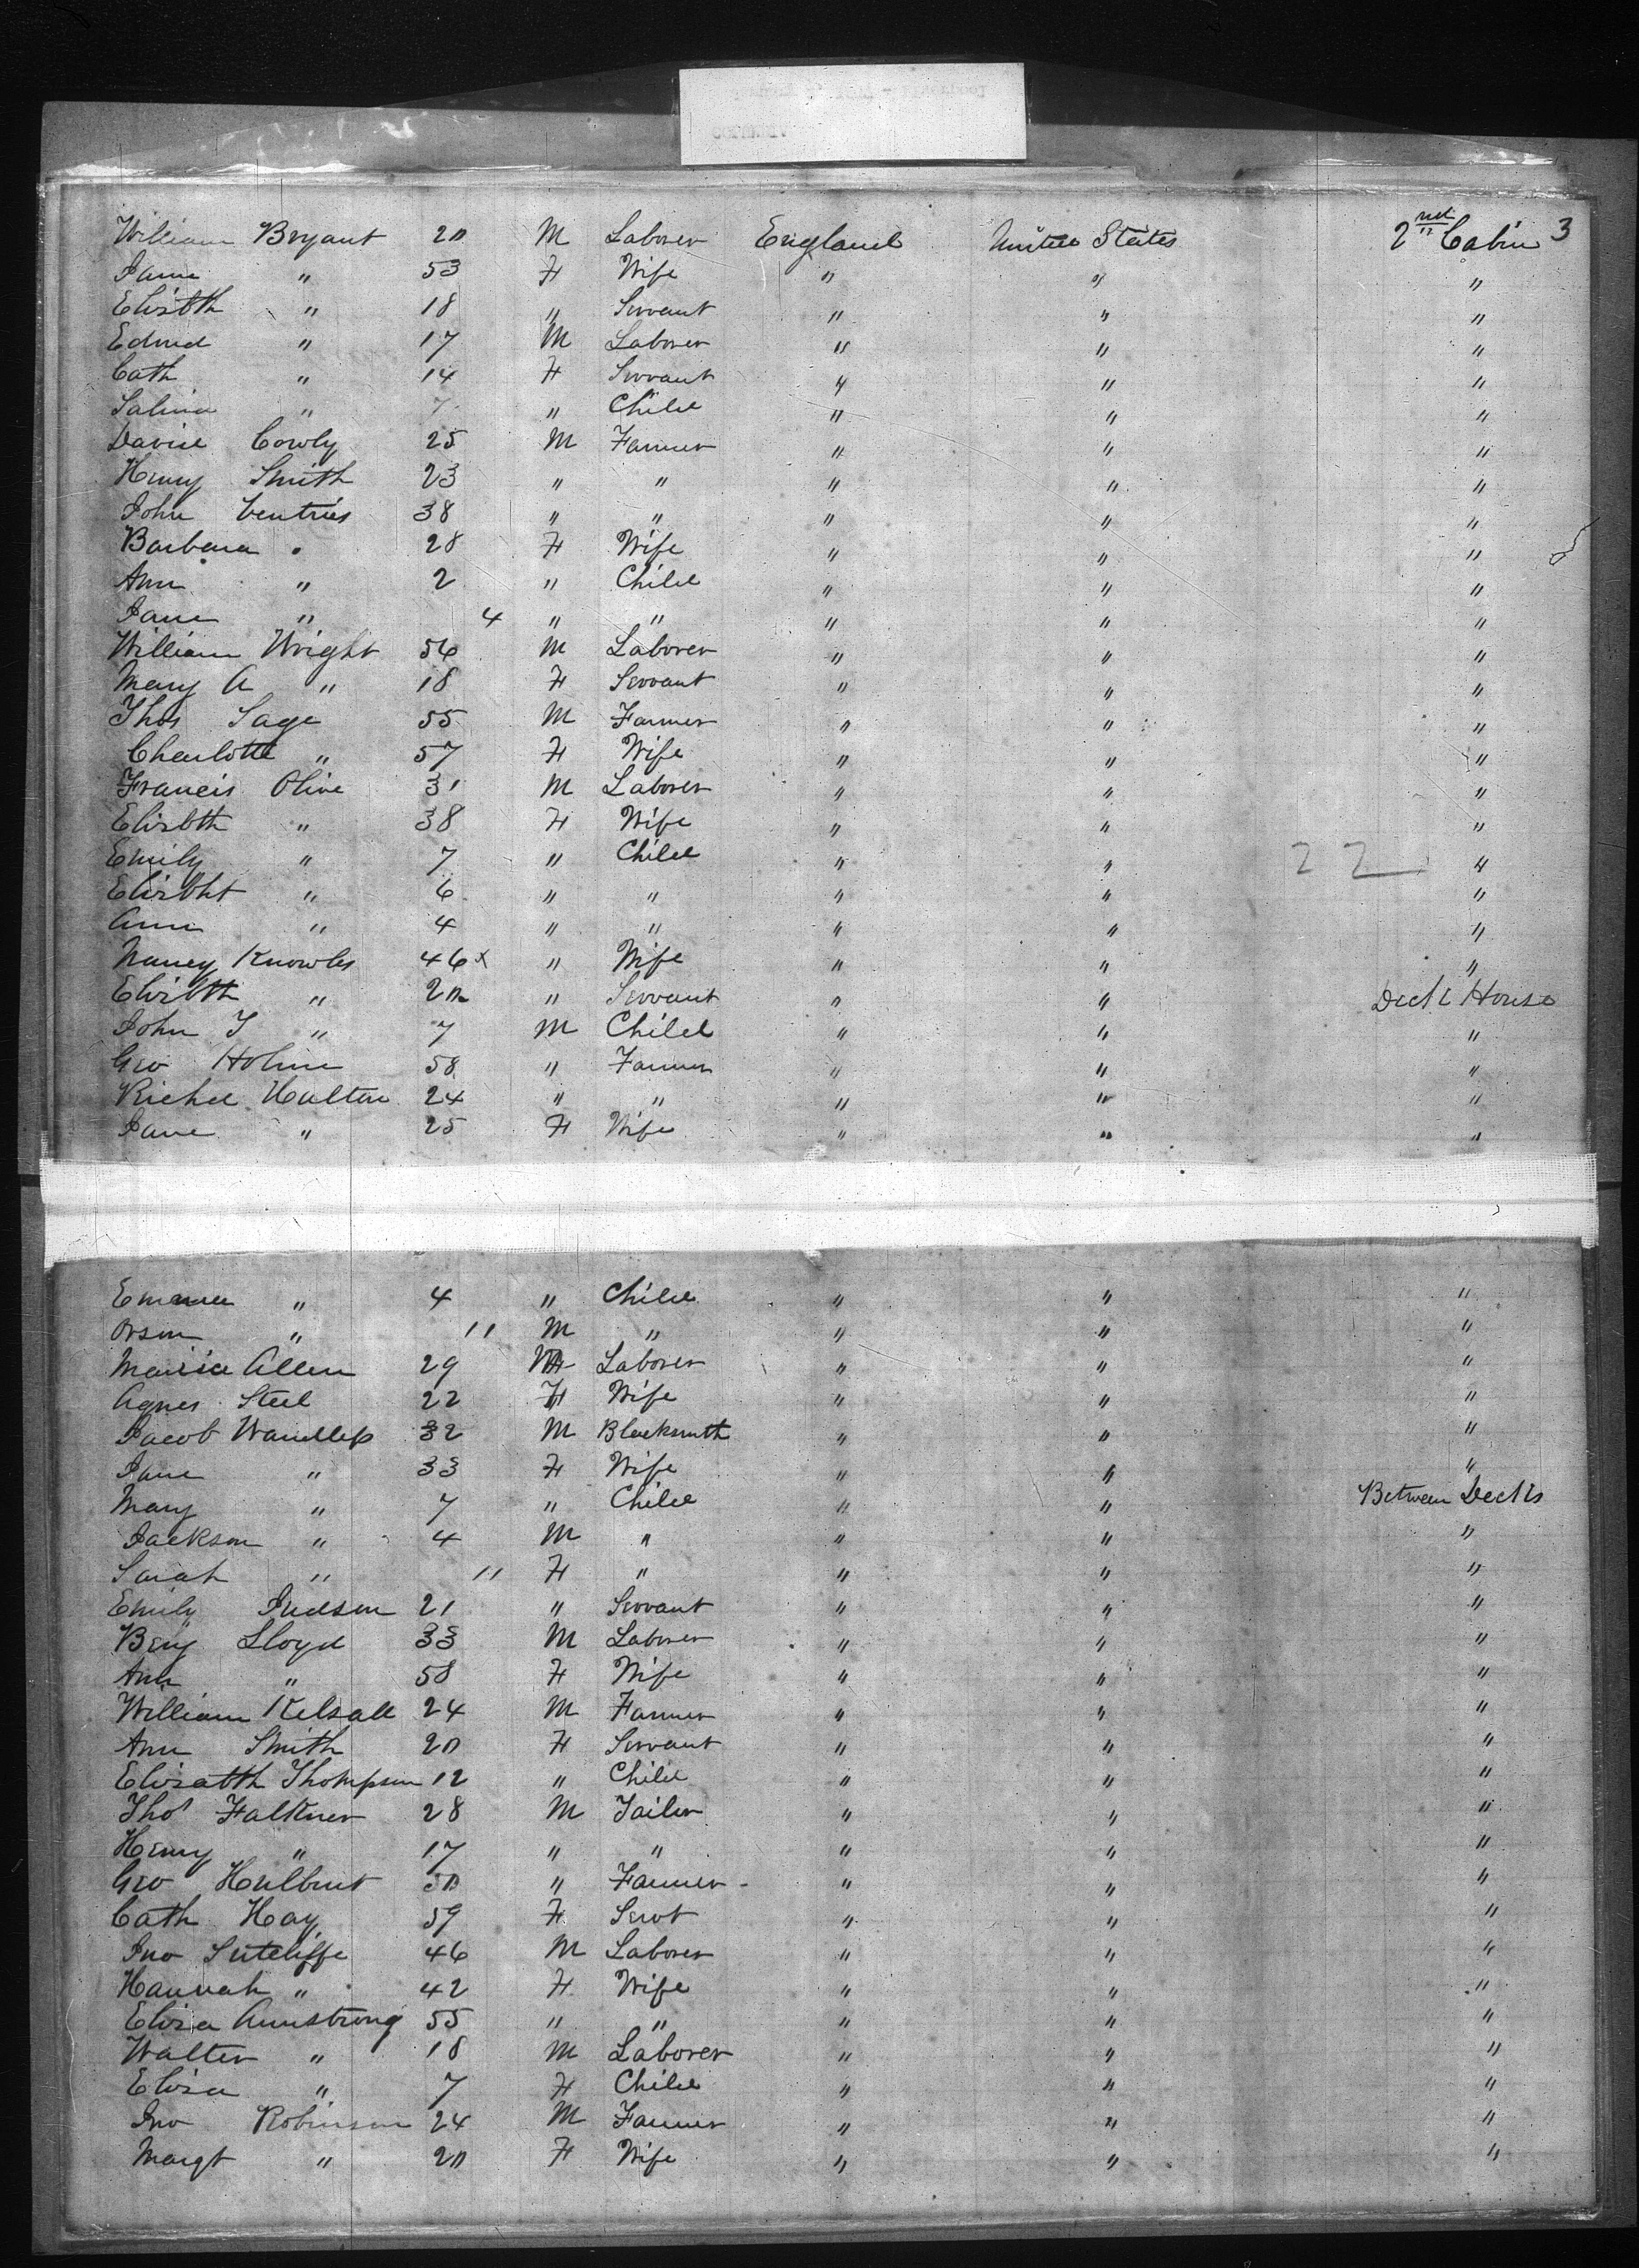 3
William Bryant 20 M Laborer England United States 2nd Cabin
Jane " 53 F Wife " " "
Elisbth " 18 " Servant " " "
Edwd " 17 M Laborer " " "
Cath " 14 F Servant " " "
Salina " 7 " Child " " "
David Cowly 25 M Farmer " " "
Henry Smith 23 " " " " "
John Ventries 38 " " " " "
Barbara " 28 F Wife " " "
Ann " 2 " Child " " "
Jane " 4 " " " " "
William Wright 56 M Laborer " " "
Mary A " 18 F Servant " " "
Thos Sage 55 M Farmer " " "
Charlotte " 57 F Wife " " "
Francis Olive 31 M Laborer " " "
Elisbth " 38 F Wife " " "
Emily " 7 " Child " " 22 "
Elisbht " 6 " " " " "
Ann " 4 " " " " "
Nancy Knowles 46x " Wife " " "
Elisbth " 20 " Servant " " Deck House
John T " 7 M Child " " "
Geo Holme 58 " Farmer " " "
Richd Halton 24 " " " " "
Jane " 25 F Wife " " "
Emma " 4 " Child " " "
Orson " 11 M " " " "
Allen 29 M Laborer " " "
Agnes Steel 22 F Wife " " "
Jacob Wandless 32 M Blacksmith " " "
Jane " 33 F Wife " " "
Mary " 7 " Child " " Between Decks
Jackson " 4 M " " " "
Sarah " 11 F " " " "
Emily Judson 21 " Servant " " "
Benj Lloyd 33 M Laborer " " "
Ann " 58 F Wife " " "
William Kelsall 24 M Farmer " " "
Ann Smith 20 F Servant " " "
Elisabth Thompson 12 " Child " " "
Thos Falkner 28 M Tailor " " "
Henry " 17 " " " " "
Geo Hulburt 50 " Farmer " " "
Cath Hay 59 F Servt " " "
Jno Sutcliffe 46 M Laborer " " "
Hannah " 42 F Wife " " "
Eliza Armstrong 55 " " " " "
Walter " 18 M Laborer " " "
Eliza " 7 F Child " " "
Jno Robinson 24 M Farmer " " "
Margt " 20 F Wife " " "